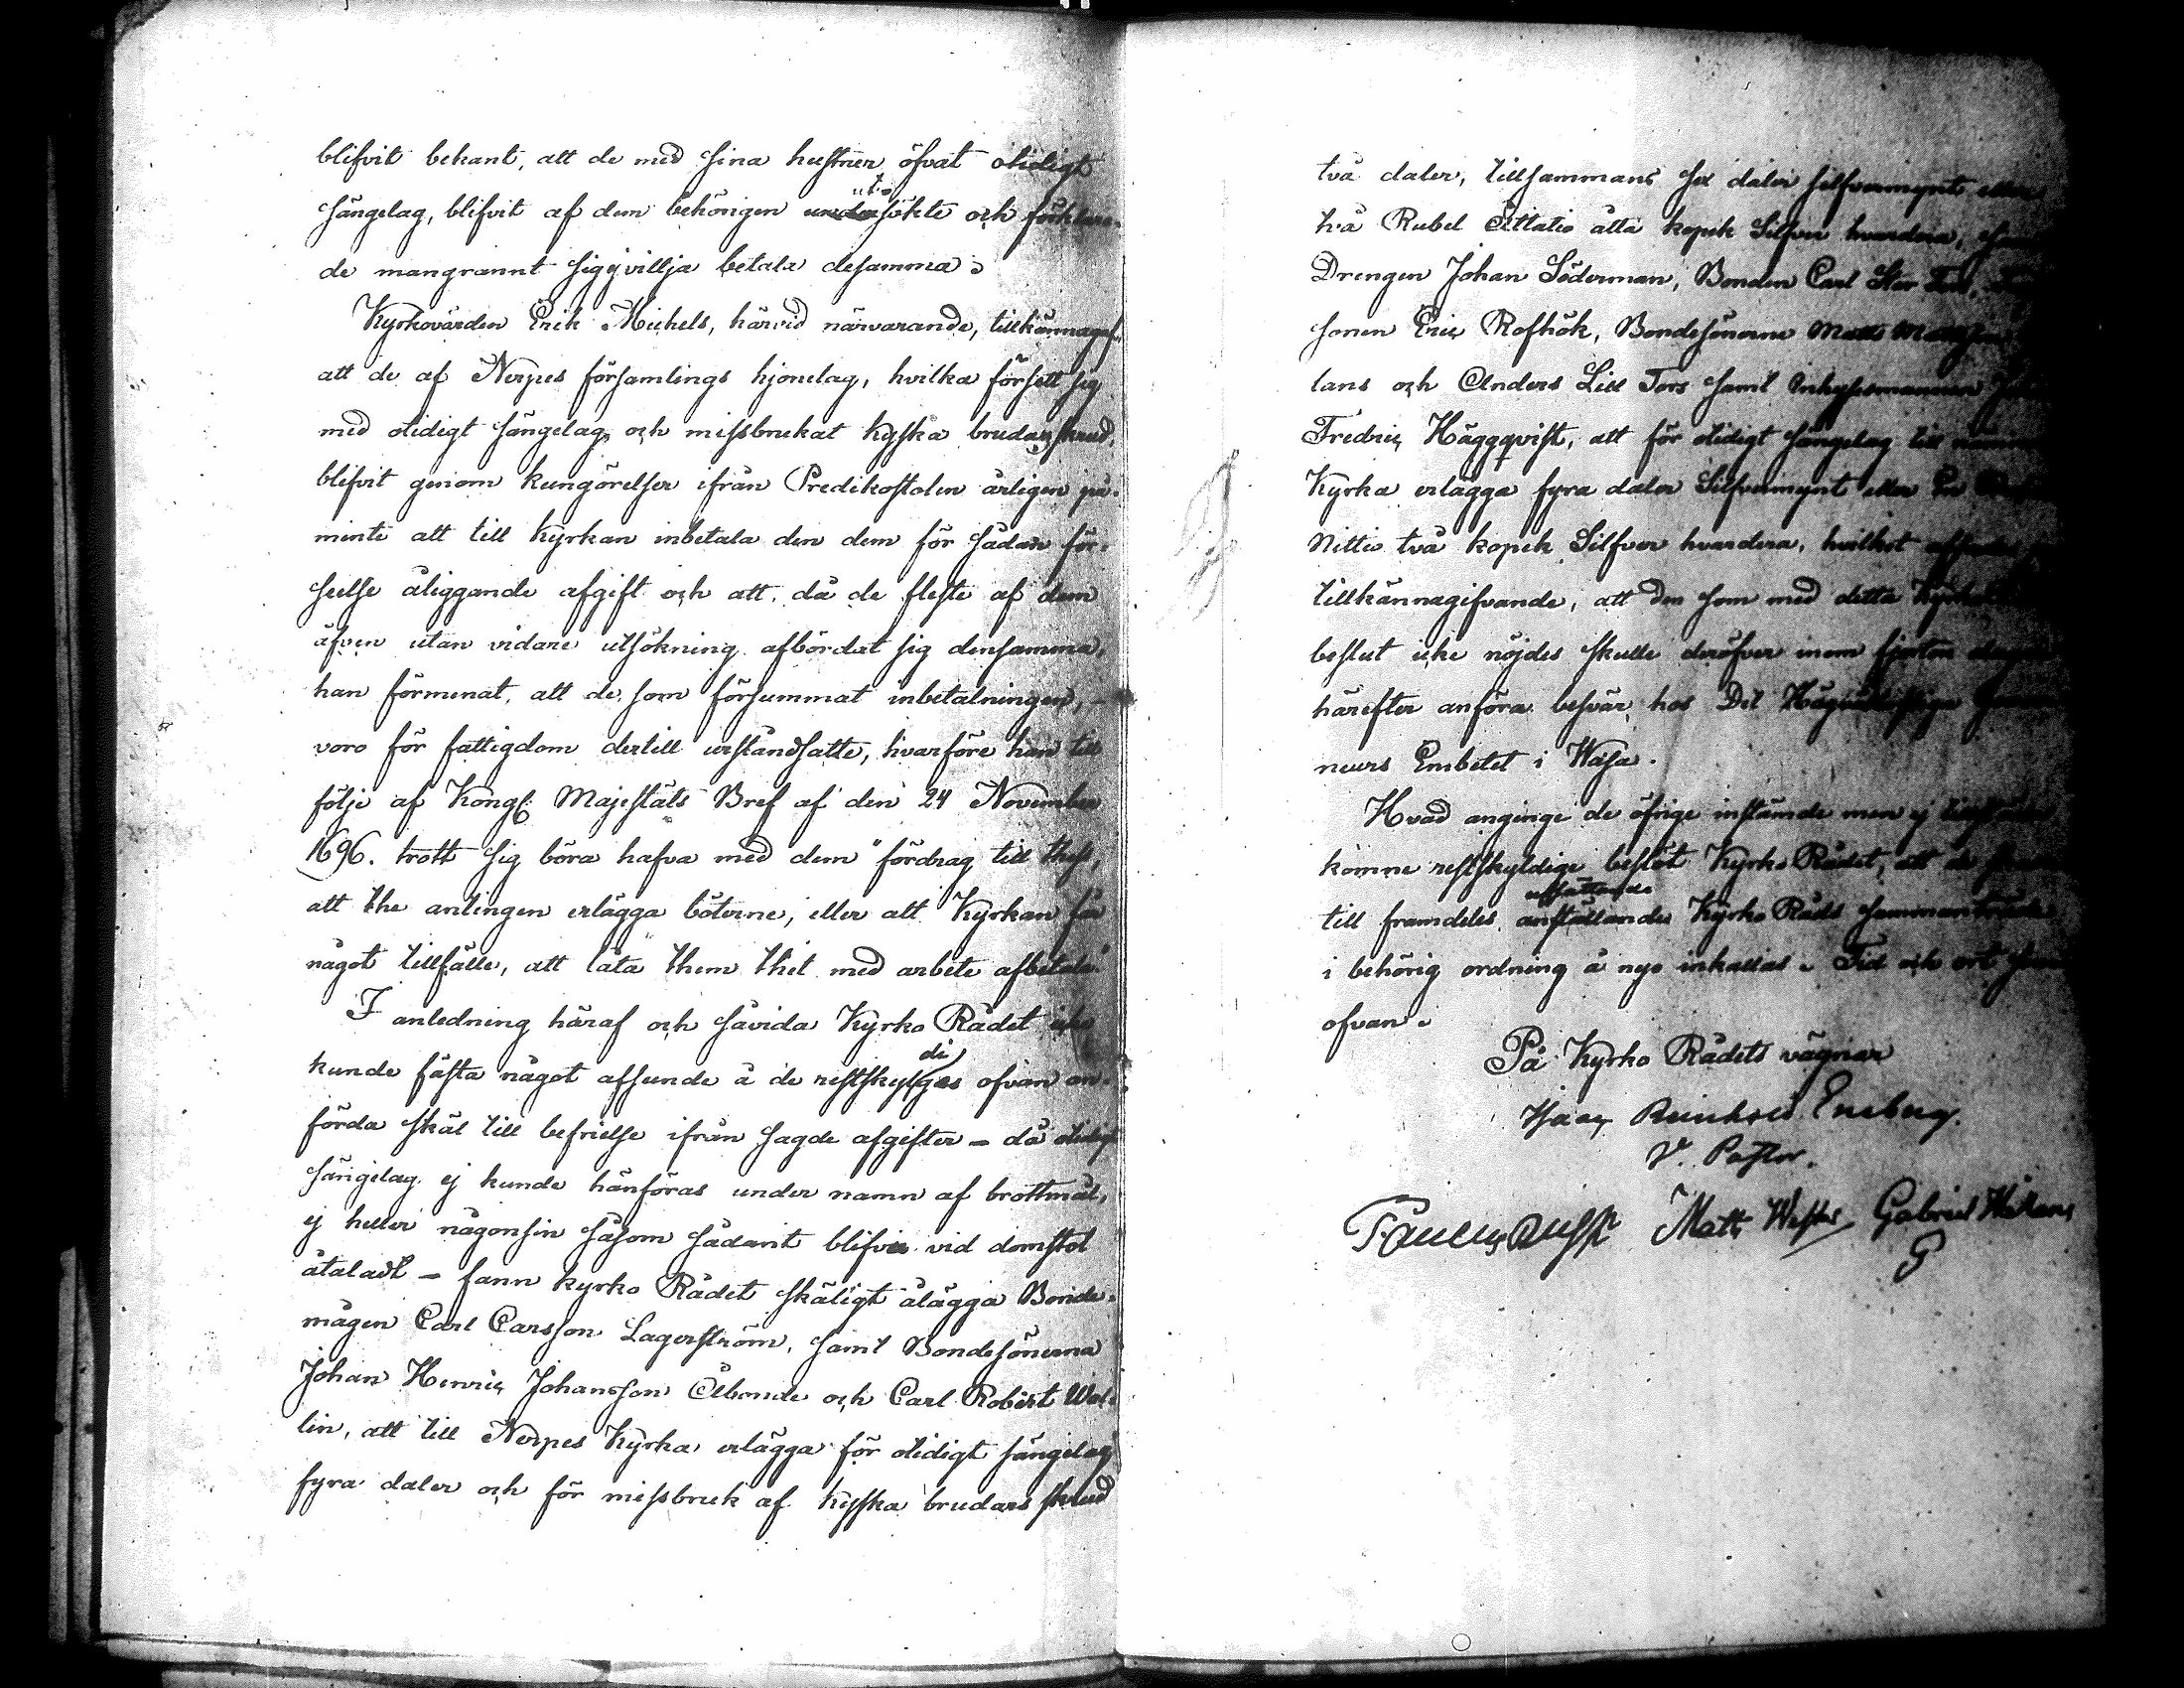 blifvit bekant, att de med sina hustrur öfvat otidigt
sängelag, blifvit af dem behörigen utsökte och förklara-
de mangrannt sig ej villja betala desamma.
Kyrkovärden Erik Michels, härvid närvarande, tillkännagaf
att de af Nerpes församlings hjonelag, hvilka försett sig
med otidigt sängelag, och missbrukat kyska brudars skrud,
blifvit genom kungörelser ifrån Predikostolen årligen på-
minte att till Kyrkan inbetala den dem för sådan för-
seelse åliggande afgift och att, då de fleste af dem
äfven utan vidare utsökning afbördat sig densamma,
han förmenat, att de, som försummat inbetalningen, -
voro för fattigdom dertill urståndsatte, hvarföre han till
följe af Kongl. Majestäts Bref af den 24 November
1696. trott sig böra hafva med dem "fördrag till thess,
att the antingen erlägga böterne, eller att Kyrkan får
något tillfälle, att låta them thet med arbete afbetala"
I anledning häraf och såvida Kyrko Rådet icke
kunde fästa något afseende å de restskyldiges ofvan an-
förda skäl till befrielse ifrån sagde afgifter - då otidigt
sängelag ej kunde hänföras under namn af brottmål,
ej heller någonsin såsom sådant blifvit vid domstol
åtaladt - fann kyrko Rådet skäligt ålägga Bonde-
mågen Carl Carsson Lagerström, samt Bondesönerna
Johan Henric Johansson Ålbonde och Carl Robert Wal-
lin, att till Nerpes Kyrka erlägga för otidigt sängelag
fyra daler och för missbruk af kyska brudars skrud
två daler, tillsammans sex daler silfvermynt eller
två Rubel Åttatio åtta kopek Silfver hvardera,
Drengen Johan Söderman, Bonden Carl Stor
sonen Eric Rofhök, Bondesönerne Matts
lans och Anders Lill Tors samt Inhysesmannen
Fredric Häggqvist, att för otidigt sängelag till
Kyrka erlägga fyra daler Silfvermynt eller En
Nittio två kopek Silfver hvardera, hvilket
tillkännagifvande, att den som med detta Kyrko
beslut icke nöjdes skulle deröfver inom fjorton dagar
härefter anföra besvär hos Det Högvällofliga
neurs Embetet i Wasa.
Hvad anginge de öfrige instämde men ej
komne restskyldige beslöt Kyrko Rådet, att de
till framdeles anställande Kyrko Råds
i behörig ordning å nyo inkallas. Tid och ort som
ofvan.
På Kyrko Rådets vägnar
Isac Reinhold Eneberg.
V. Pastor.
Matts Gabriel